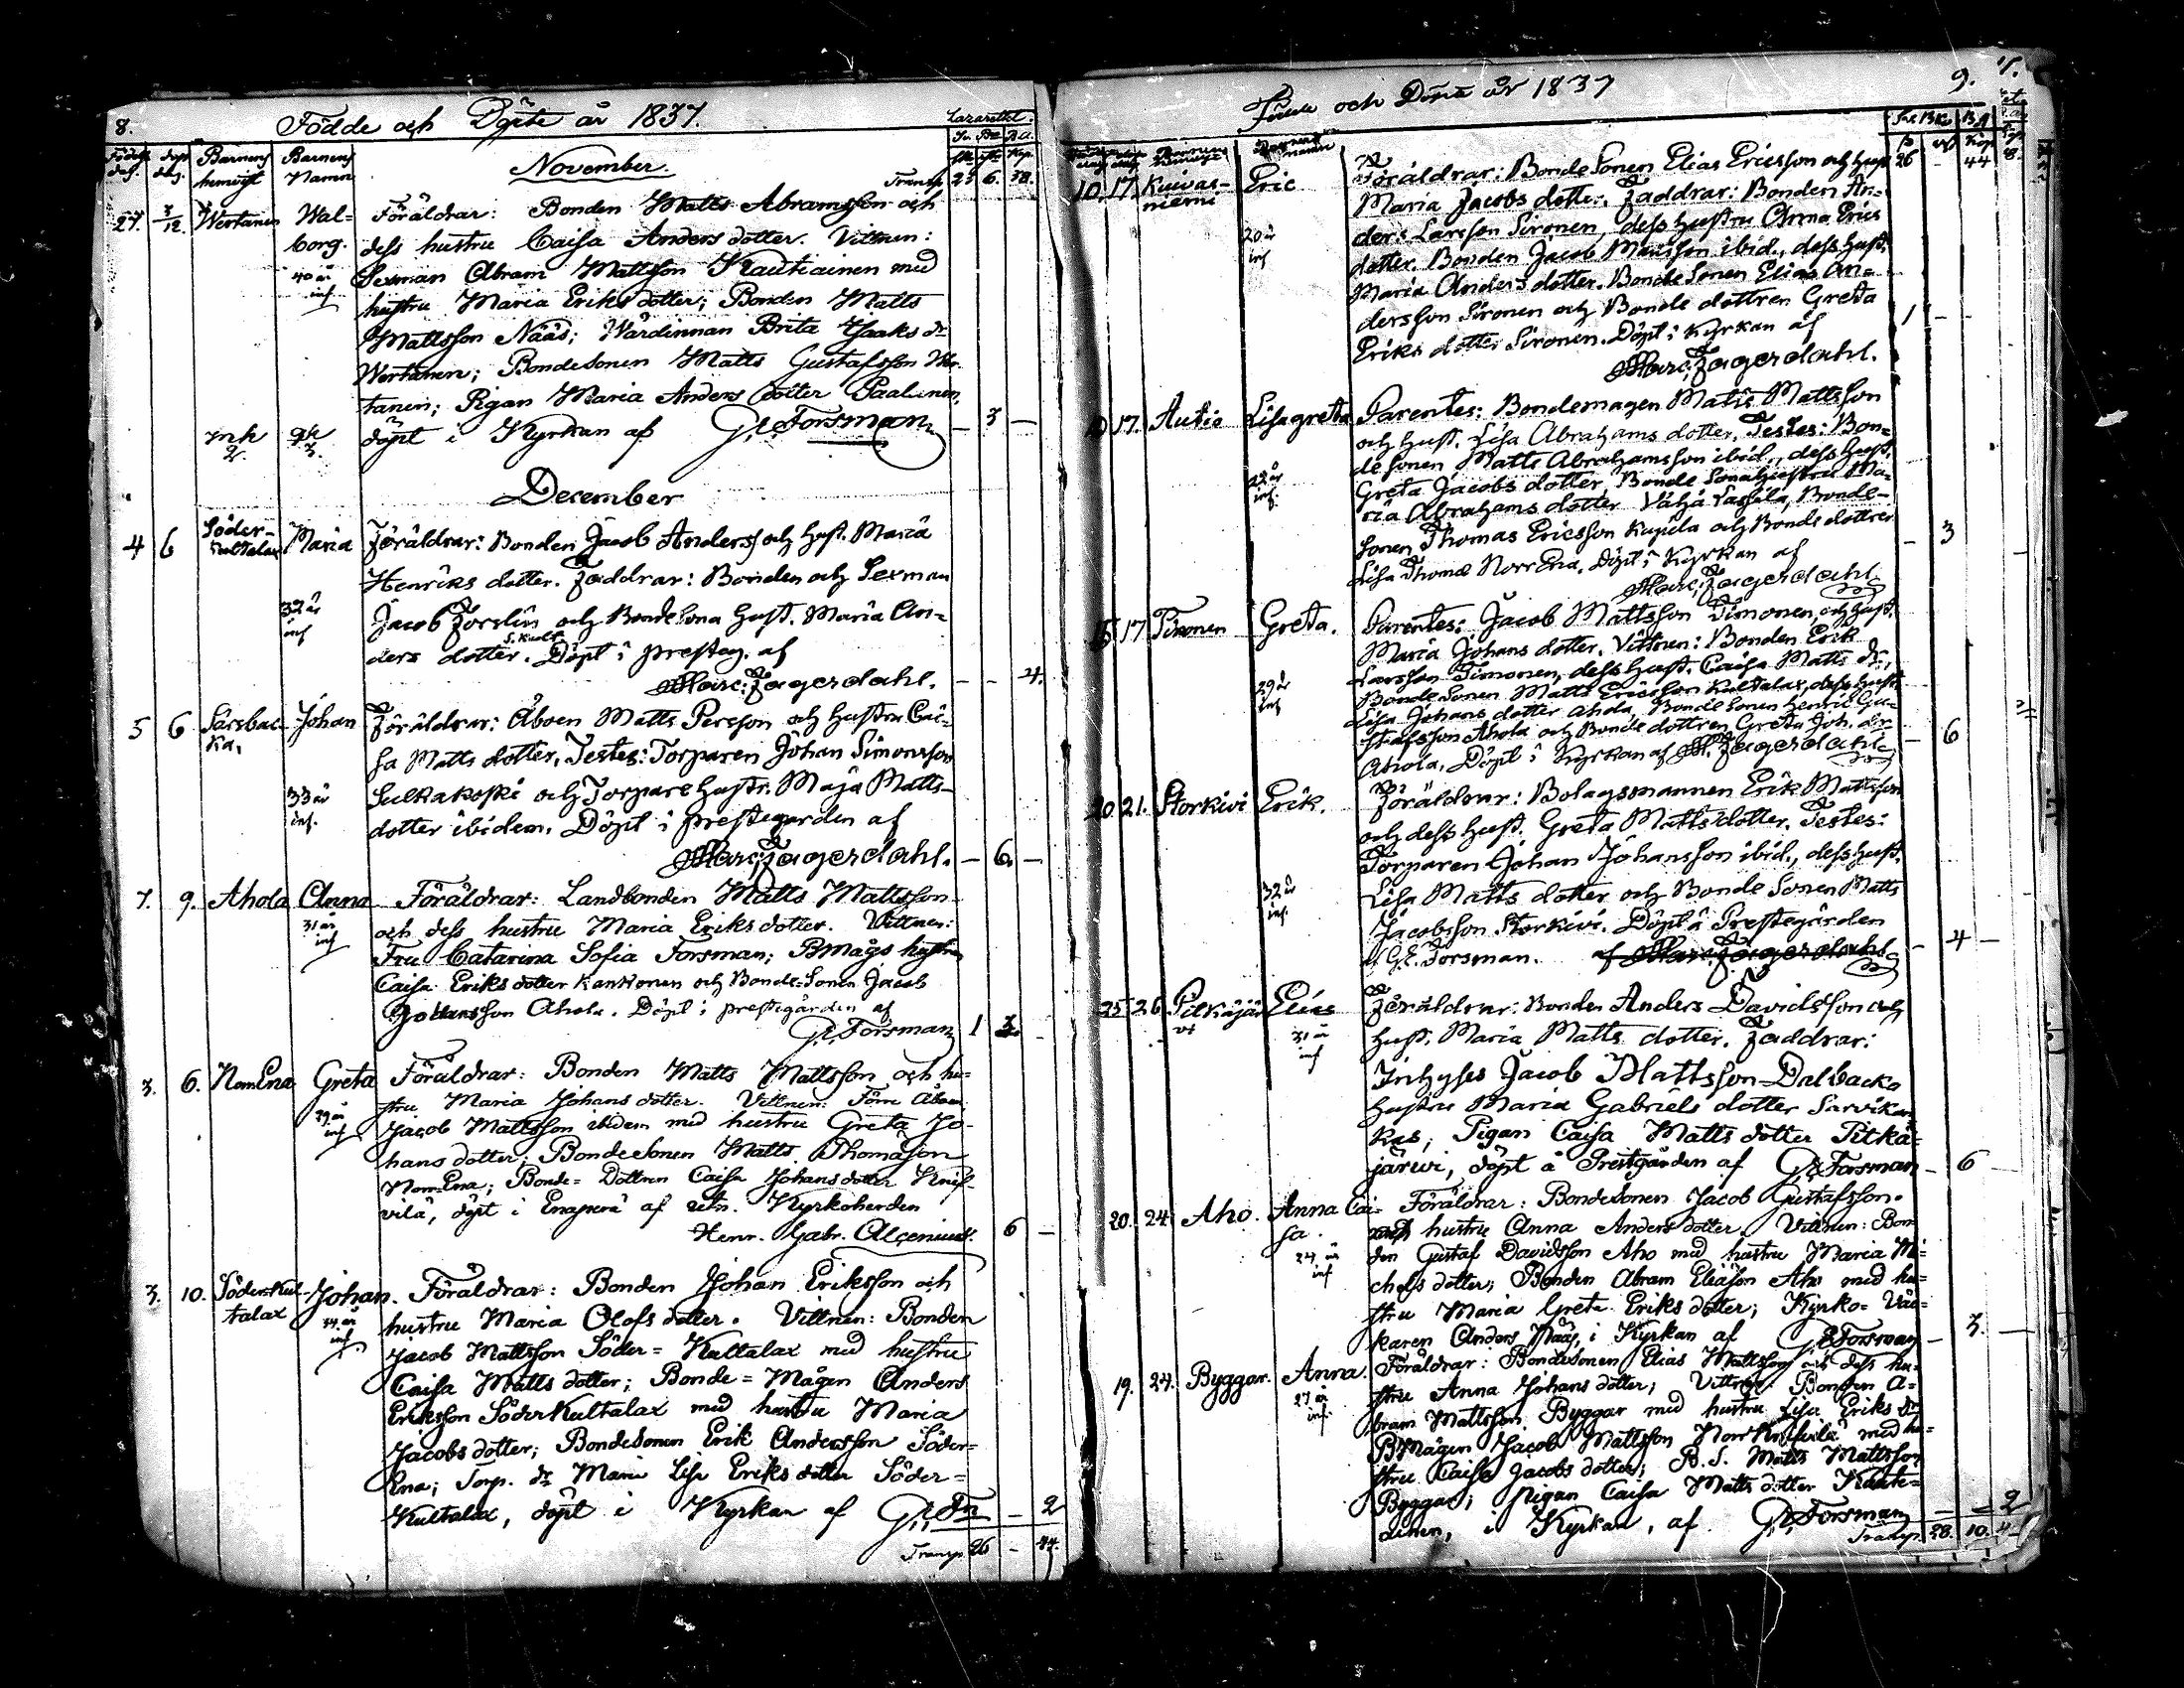 8.
Födde och Döpte år 1837.
Lazarettet.
Födelse dag. döp. dag. Barnens hemvist Barnens Namn
November.
Transp. 25. 6. 38.
27. 3/12. Wertanen Walborg. Föräldrar: Bonden Matts Abramsson och
dess hustru Caisa Anders dotter. Vittnen:
40 år inf Sexman Abram Mattsson Kautiainen med
hustru Maria Eriks dotter; Bonden Matts
Mattsson Nääs; Wärdinnan Brita Isaaks dr
Wertanen; BondeSonen Matts Gustafsson Wer-
tanen; Pigan Maria Anders dotter Paalanen,
döpt i Kyrkan af G.E. Forsman — 3 —
December
4 6 Söder-Kultalax Maria Föräldrar: Bonden Jacob Anderss. och hust. Maria
Henriks dotter. Faddrar: Bonden och Sexman
32 år inf Jacob Forslin och BondeSona hust. Maria An-
ders dotter. S. Kult. Döpt i presteg. af
Marc: Fagerdahl. — — 4.
5 6 Sarsbacka, Johan Föräldrar: Åboen Matts Persson och hustru Cai-
sa Matts dotter. Testes: Torparen Johan Simonsson
33 år inf. Sulkakoski och Torpare hustr. Maja Matts-
dotter ibidem. Döpt i prestegården af
Marc: Fagerdahl. — 6. —
7. 9. Ahola Anna Föräldrar: Landbonden Matts Mattsson
31 år inf och dess hustru Maria Eriks dotter. Vittnen:
Fru Catarina Sofia Forsman; BMågs hustru
Caisa Eriks dotter Kankonen och Bonde-Sonen Jacob
Johansson Ahola. Döpt i prestegården af
G.E. Forsman 1 3 -
3. 6. NorrEna Greta Föräldrar: Bonden Matts Mattsson och hu-
29 år inf stru Maria Johans dotter. Vittnen: Förre Åboen
Jacob Mattsson ibidem med hustru Greta Jo-
hans dotter; BondeSonen Matts Thomasson
NorrEna; Bonde-Dottren Caisa Johans dotter Knif-
vilä, döpt i Enaperä af Kyrkoherden
Henr. Gabr. Alcenius. 6 —
3. 10. SöderKul-talax Johan. Föräldrar: Bonden Johan Eriksson och
34 år inf hustru Maria Olofs dotter. Vittnen: Bonden
Jacob Mattsson Söder-Kultalax med hustru
Caisa Matts dotter; Bonde-Mågen Anders
Eriksson SöderKultalax med hustru Maria
Jacobs dotter; BondeSonen Erik Andersson Söder-
Ena; Torp. dr Maria Lisa Eriks dotter Söder-
Kultalax, döpt i Kyrkan af G.E. Fn — 2
Transp. 26 — 44.
9.
Födde och Döpte år 1837
26 — 44
10. 17. Kuivas-niemi Eric Föräldrar: BondeSonen Elias Ericsson och hust
Maria Jacobs dotter. Faddrar: Bonden An-
20 år inf ders Larsson Sironen, dess hustru Anna Erics
dotter. Bonden Jacob Mattsson ibid., dess hust.
Maria Anders dotter. BondeSonen Elias An-
dersson Sironen och Bonde dottren Greta
Eriks dotter Sironen. Döpt i Kyrkan af 1 —
Marc: Fagerdahl.
17. Autio Lisagreta Parentes: Bondemågen Matts Mattsson
och hust. Lisa Abrahams dotter. Testes: Bon-
22 år inf. de sonen Matts Abrahamsson ibid., dess hust.
Greta Jacobs dotter, Bonde Sonahustru Ma-
ria Abrahams dotter Vähä Vassila, Bonde-
sonen Thomas Ericsson Kupila och Bonde dottren
Lisa Thomæ NorrEna, Döpt i Kyrkan af — 3
Marc: Fagerdahl
17 Timonen Greta. Parentes: Jacob Mattsson Timonen, och hust.
Maria Johans dotter. Vittnen: Bonden Erik
29 år inf Larsson Timonen, dess hust. Caisa Matts dr.,
BondeSonen Matts Ericsson Kultalax, dess hust.
Lisa Johans dotter Ahola, BondeSonen Henric Gu-
stafsson Ahola och Bonde dottren Greta Joh. dr
Ahola, Döpt i Kyrkan af M. Fagerdahl — 6
20 21. Storkivi Erik. Föräldrar: Bolagsmannen Erik Mattsson
och dess hust. Greta Matts dotter. Testes:
Torparen Johan Johansson ibid., dess hust.
32 år inf. Lisa Matts dotter och Bonde Sonen Matts
Jacobsson Storkivi. Döpt å Prestegården
G.E. Forsman. af Marc: Fagerdahl - 4 —
25 26 Pitkäjärvi Elias Föräldrar: Bonden Anders Davidsson och
31 år inf hust. Maria Matts dotter. Faddrar:
Inhyses Jacob Mattsson Dalbacka
hustru Maria Gabriels dotter Sarvikan
Kas; Pigan Caisa Matts dotter Pitkä-
järvi, döpt å Prestgården af G.E. Forsman — 6 —
20. 24 Aho. Anna Cai-sa. Föräldrar: BondeSonen Jacob Gustafsson.
och hustru Anna Anders dotter. Vittnen: Bon-
24 år inf den Gustaf Davidsson Aho med hustru Maria Mi-
chels dotter; Bonden Abram Eliasson Aho med hu-
stru Maria Greta Eriks dotter; Kyrko-Väc-
karen Anders Nääs, i Kyrkan af G.E. Forsman — 3. —
19. 24. Byggar. Anna. Föräldrar: BondeSonen Elias Mattsson och dess hu-
27 år inf. stru Anna Johans dotter; Vittnen: Bonden A-
bram Mattsson Byggar med hustru Lisa Eriks dr
BMågen Jacob Mattsson Norr Knifvilä med hu-
stru Caisa Jacobs dotter; B. S. Matts Mattsson
Byggar; Pigan Caisa Matts dotter Kauti-
ainen, i Kyrkan, af G.E. Forsman — — 2
Transp. 28. 10. 4